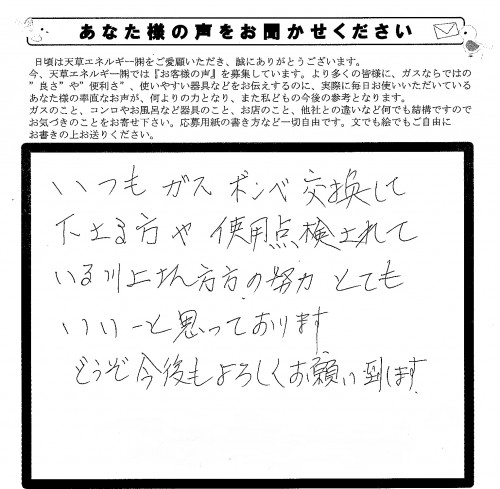 あなた様の声をお聞かせください
日頃は天草エネルギー㈱をご愛顧いただき、誠にありがとうございます。
今、天草エネルギー㈱では『お客様の声』を募集しています。より多くの皆様に、ガスならではの
”良さ”や”便利さ”、使いやすい器具などをお伝えするのに、実際に毎日お使いいただいている
あなた様の率直なお声が、何よりの力となり、また私どもの今後の参考となります。
ガスのこと、コンロやお風呂など器具のこと、お店のこと、他社との違いなど何でも結構ですので
お気づきのことをお寄せ下さい。応募用紙の書き方など一切自由です。文でも絵でもご自由に
お書きの上お送りください。
いつも ガス ボンベ 交換して
下さる方や 使用点検されて
いる川上さん方方の努力 とても
いいーと思っております
どうぞ今後もよろしくお願い致します